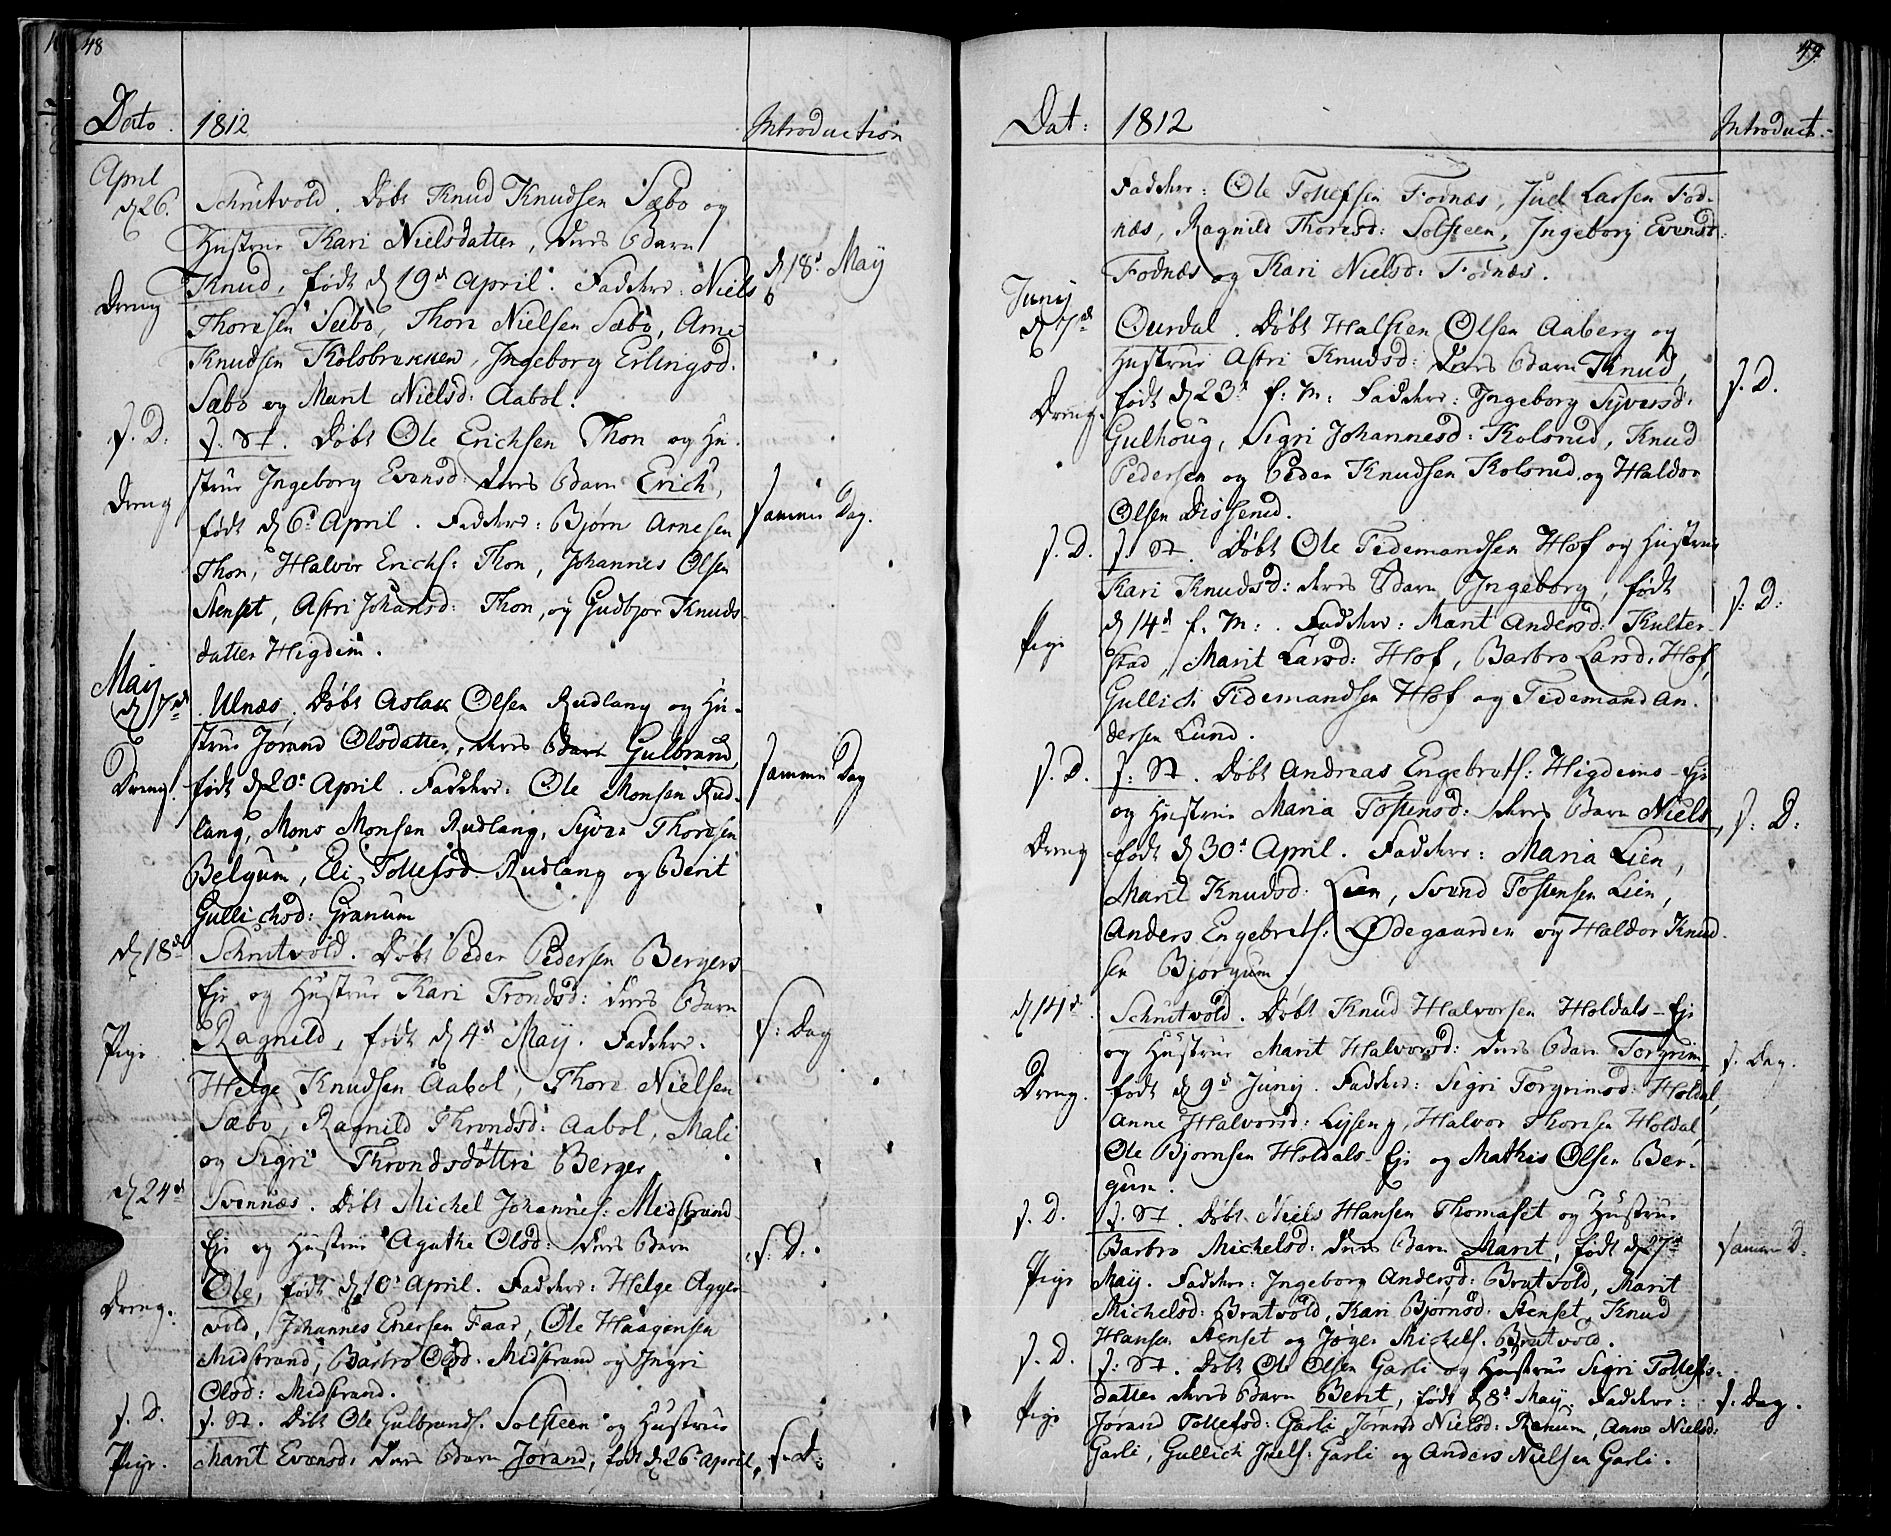 48
Dato. 1812 Introduction
April
d 26. Schrutvold. Døbt Knud Knudsen Sæbo og
Hustrue Kari Nielsdatter, deres Barn
Dreng Knud, født d 19d April. Faddere: Niels d 18d May
Thoresen Sæbo, Thore Nielsen Sæbo, Arne
Knudsen Kolsbrækken, Ingeborg Erlingsd.
Sæbo og Marit Nielsd: Aabol.
s. D. s. St. Døbt Ole Erichsen Thon og Hu-
strue Ingeborg Evensd: deres Barn Erich,
Dreng født d 6d April. Faddere: Bjørn Arnesen samme Dag.
Thon, Halvor Erichs: Thon, Johannes Olsen
Stenset, Astri Johansd: Thon, og Gudbjor Knuds-
datter Higdem.
May
d 7de Ulnæs. Døbt Aslak Olsen Rudlang og Hu-
strue Jørand Olsdatter, deres Barn Gulbrand,
Dreng. født d 20d April. Faddere: Ole Monsen Rud- samme Dag
lang, Mons Monsen Rudlang, Syver Thoresen
Belgum, Eli Tollefsd Rudlang og Berit
Gullichsd: Granum
d 18de Schrutvold. Døbt Peder Pedersen Bergers
Eje og Hustrue Kari Trondsd: deres Barn
Pige Ragnild, født d 4d May. Faddere: s: Dag
Helge Knudsen Aabol, Thore Nielsen
Sæbo, Ragnild Throndsd: Aabol, Mali
og Sigri Throndsdøttre Berger
d 24d Svennæs. Døbt Michel Johannes: Midstrand-
Eje og Hustrue Agathe Olsd: deres Barn s. D:
Dreng. Ole, født d 10d April. Faddere: Helge Agger-
vold, Johannes Enersen Faas, Ole Haagensen
Midstrand, Barbro Olsd. Midstrand og Ingri
Olsd: Midstrand.
s. D. s. St. Døbt Ole Gulbrands. Solsteen og Hustrue
Pige. Marit Evensd: deres Barn Jørand, født d 26d April, s. d:
49.
Dat: 1812 Introduct.
Faddere: Ole Tollefsen Fodnæs, Juel Larsen Fod-
næs, Ragnild Thoresd: Solsteen, Ingeborg Evensd:
Fodnæs og Kari Nielsd: Fodnæs.
Junij
d 7d Ourdal. Døbt Halsten Olsen Aaberg og
Hustrue Astri Knudsd: deres Barn Knud, s. D.
Dreng. født d 23d f. M: Faddere: Ingeborg Syversd:
Gulhoug, Sigri Johannesd: Kolsrud, Knud
Pedersen og Peder Knudsen Kolsrud og Haldor
Olsen Disserud.
s. D. s. St. Døbt Ole Tidemandsen Hof og Hustrue
Kari Knudsd: deres Barn Ingeborg, født s: D:
Pige d 14d f. M: . Faddere: Marit Andersd: Kulter-
stad, Marit Larsd: Hof, Barbro Larsd: Hof,
Gullich Tidemandsen Hof og Tidemand An-
dersen Lund.
s. D. s: St. Døbt Andreas Engebrets: Higdems-Eje
og Hustrue Maria Tostensd: deres Barn Niels, s: D:
Dreng født d 30d April. Faddere: Maria Lien,
Marit Knudsd: Lien, Svend Tostensen Lien,
Anders Engebrets: Ødegaarden og Haldor Knud-
sen Bjørgum.
d 14d. Schrutvold. Døbt Knud Halvorsen Holdals-Eje
og Hustrue Marit Halvorsd: deres Barn Torgrim s. Dag.
Dreng. født d 9d Junij. Faddere: Sigri Torgrimsd: Holdal,
Anne Halvorsd: Lysen, Halvor Thoresen Holdal,
Ole Bjørnsen Holdals-Eje og Mathis Olsen Ber-
gum.
s. D. s. St. Døbt Niels Hansen Thomaset og Hustrue
Barbro Michelsd: deres Barn Marit, født d 27d samme D.
Pige May. Faddere: Ingeborg Andersd: Bratvold, Marit
Michelsd: Bratvold, Kari Bjørnsd. Stenset, Knud
Hansen Stenset og Jøger Michels. Bratvold.
s. D. s: St. Døbt Ole Olsen Garli og Hustrue Sigri Tollefs-
datter deres Barn Berit, født d 8d May. Faddere: s. Dag.
Pige Jørand Tollefsd: Garli, Jørand Nielsd: Ranum, Anne Nielsd:
Garli, Gullich Juels: Garli og Anders Nielsen Garli.